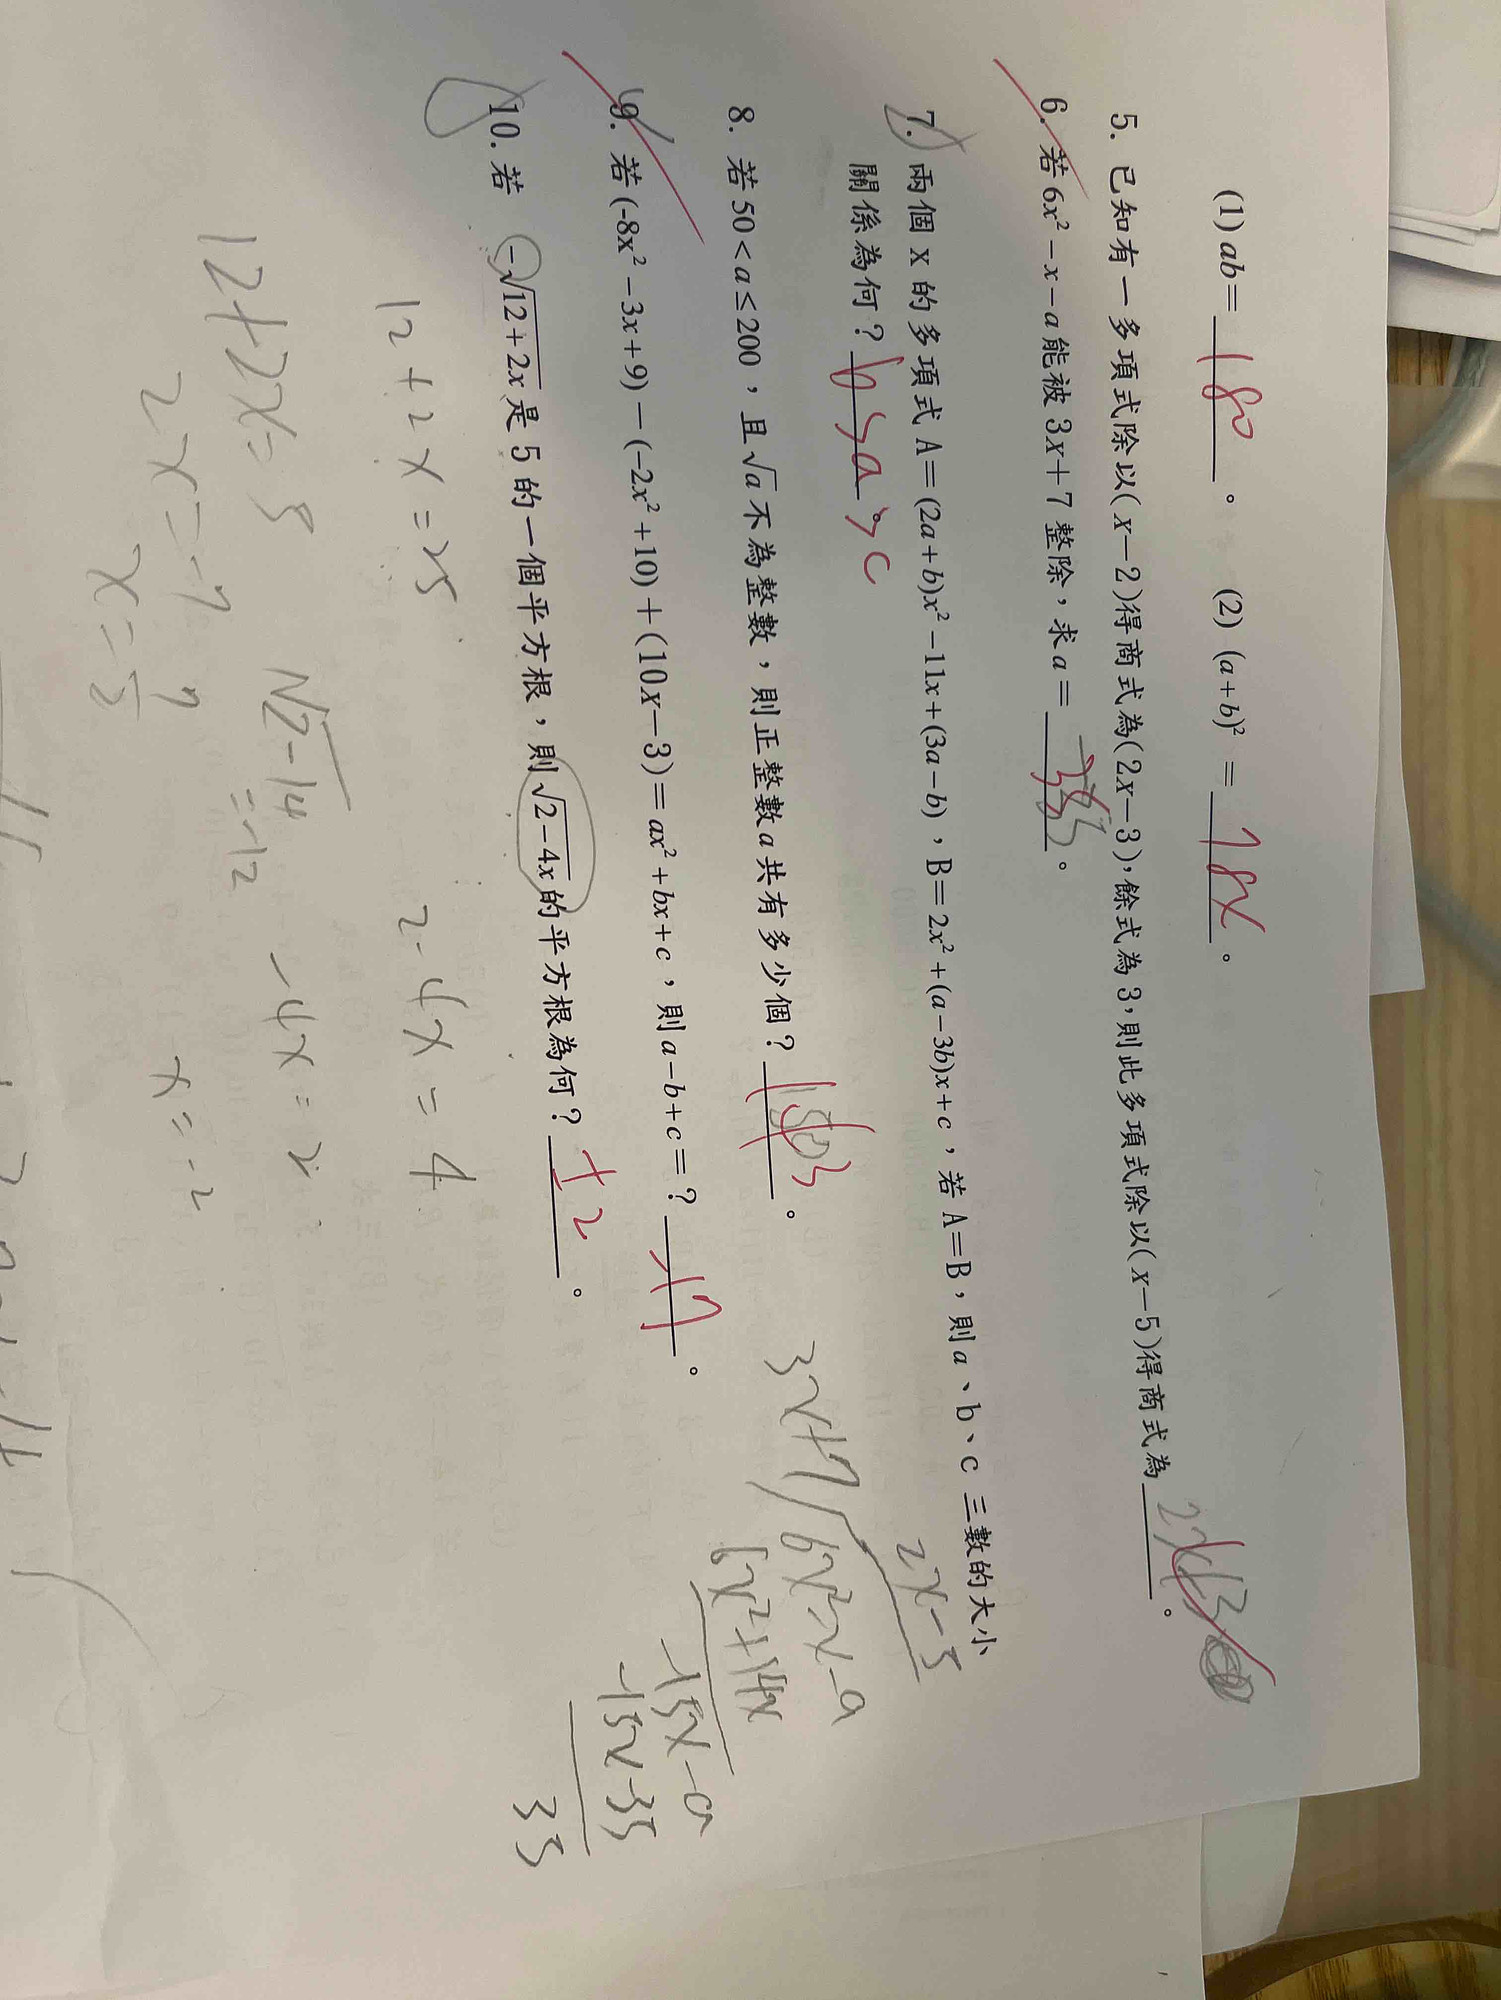 (1) ab= 180 。 (2) (a+b)² = 784 。
5. 已知有一多項式除以(x-2)得商式為(2x-3),餘式為3,則此多項式除以(x-5)得商式為 2x+3 。
6. 若6x²-x-a能被3x+7整除,求a= 35 。
7. 兩個x的多項式A=(2a+b)x²-11x+(3a-b),B=2x²+(a-3b)x+c,若A=B,則a、b、c三數的大小
關係為何? b>a>c
8. 若50<a≤200,且√a不為整數,則正整數a共有多少個? 143 。
9. 若(-8x²-3x+9)-(-2x²+10)+(10x-3)=ax²+bx+c,則a-b+c=? -17 。
10. 若 -√12+2x是5的一個平方根,則√2-4x的平方根為何? ±2 。
12+2x=25
2-4x=4
12+2x=5
2x=-7
x=-7/2
√2-14
=-12
-4x=2
x=-2
2x-5
3x+7
6x²-x-a
6x²+14x
-15x-a
-15x-35
35